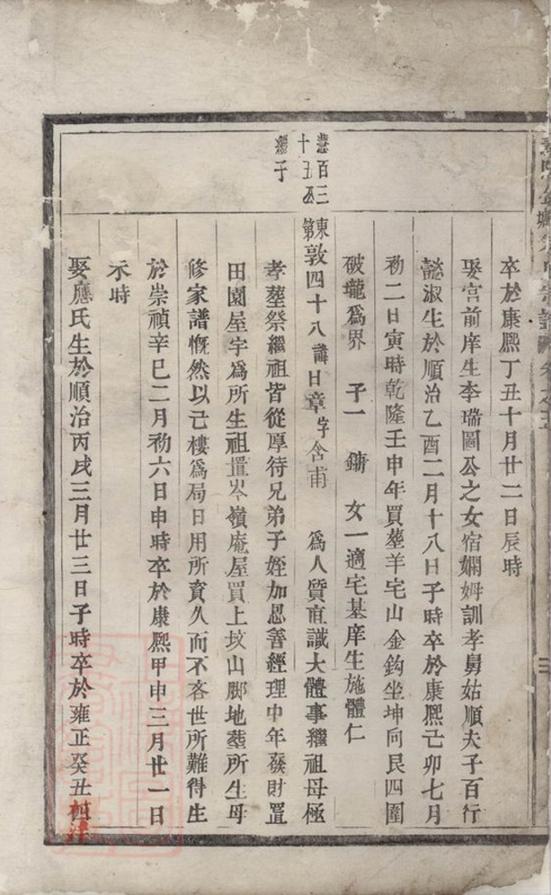 卒於康熙丁丑十月廿二日辰時
娶宫前庠生李瑞圖公之女宿嫻姆訓孝舅姑順夫子百行
懿淑生於順治乙酉二月十八日子時卒於康熙己卯七月
初二日寅時乾隆壬申年買塟羊宅山金鈎坐坤向艮四圍
破壠爲界 子一 鏞 女一適宅基庠生施體仁
慧百三
十五公
繼子
東第敦四十八諱日章字含甫 爲人質直識大體事繼祖母極
孝塟祭繼祖皆從厚待兄弟子姪加恩善經理中年發財置
田園屋宇爲所生祖置岑嶺庵屋買上坟山脚地塟所生母
修家譜慨然以己樓爲局日用所賫久而不吝世所難得生
於崇禎辛巳二月初六日申時卒於康熙甲申三月廿一日
未時
娶應氏生於順治丙戌三月廿三日子時卒於雍正癸丑四